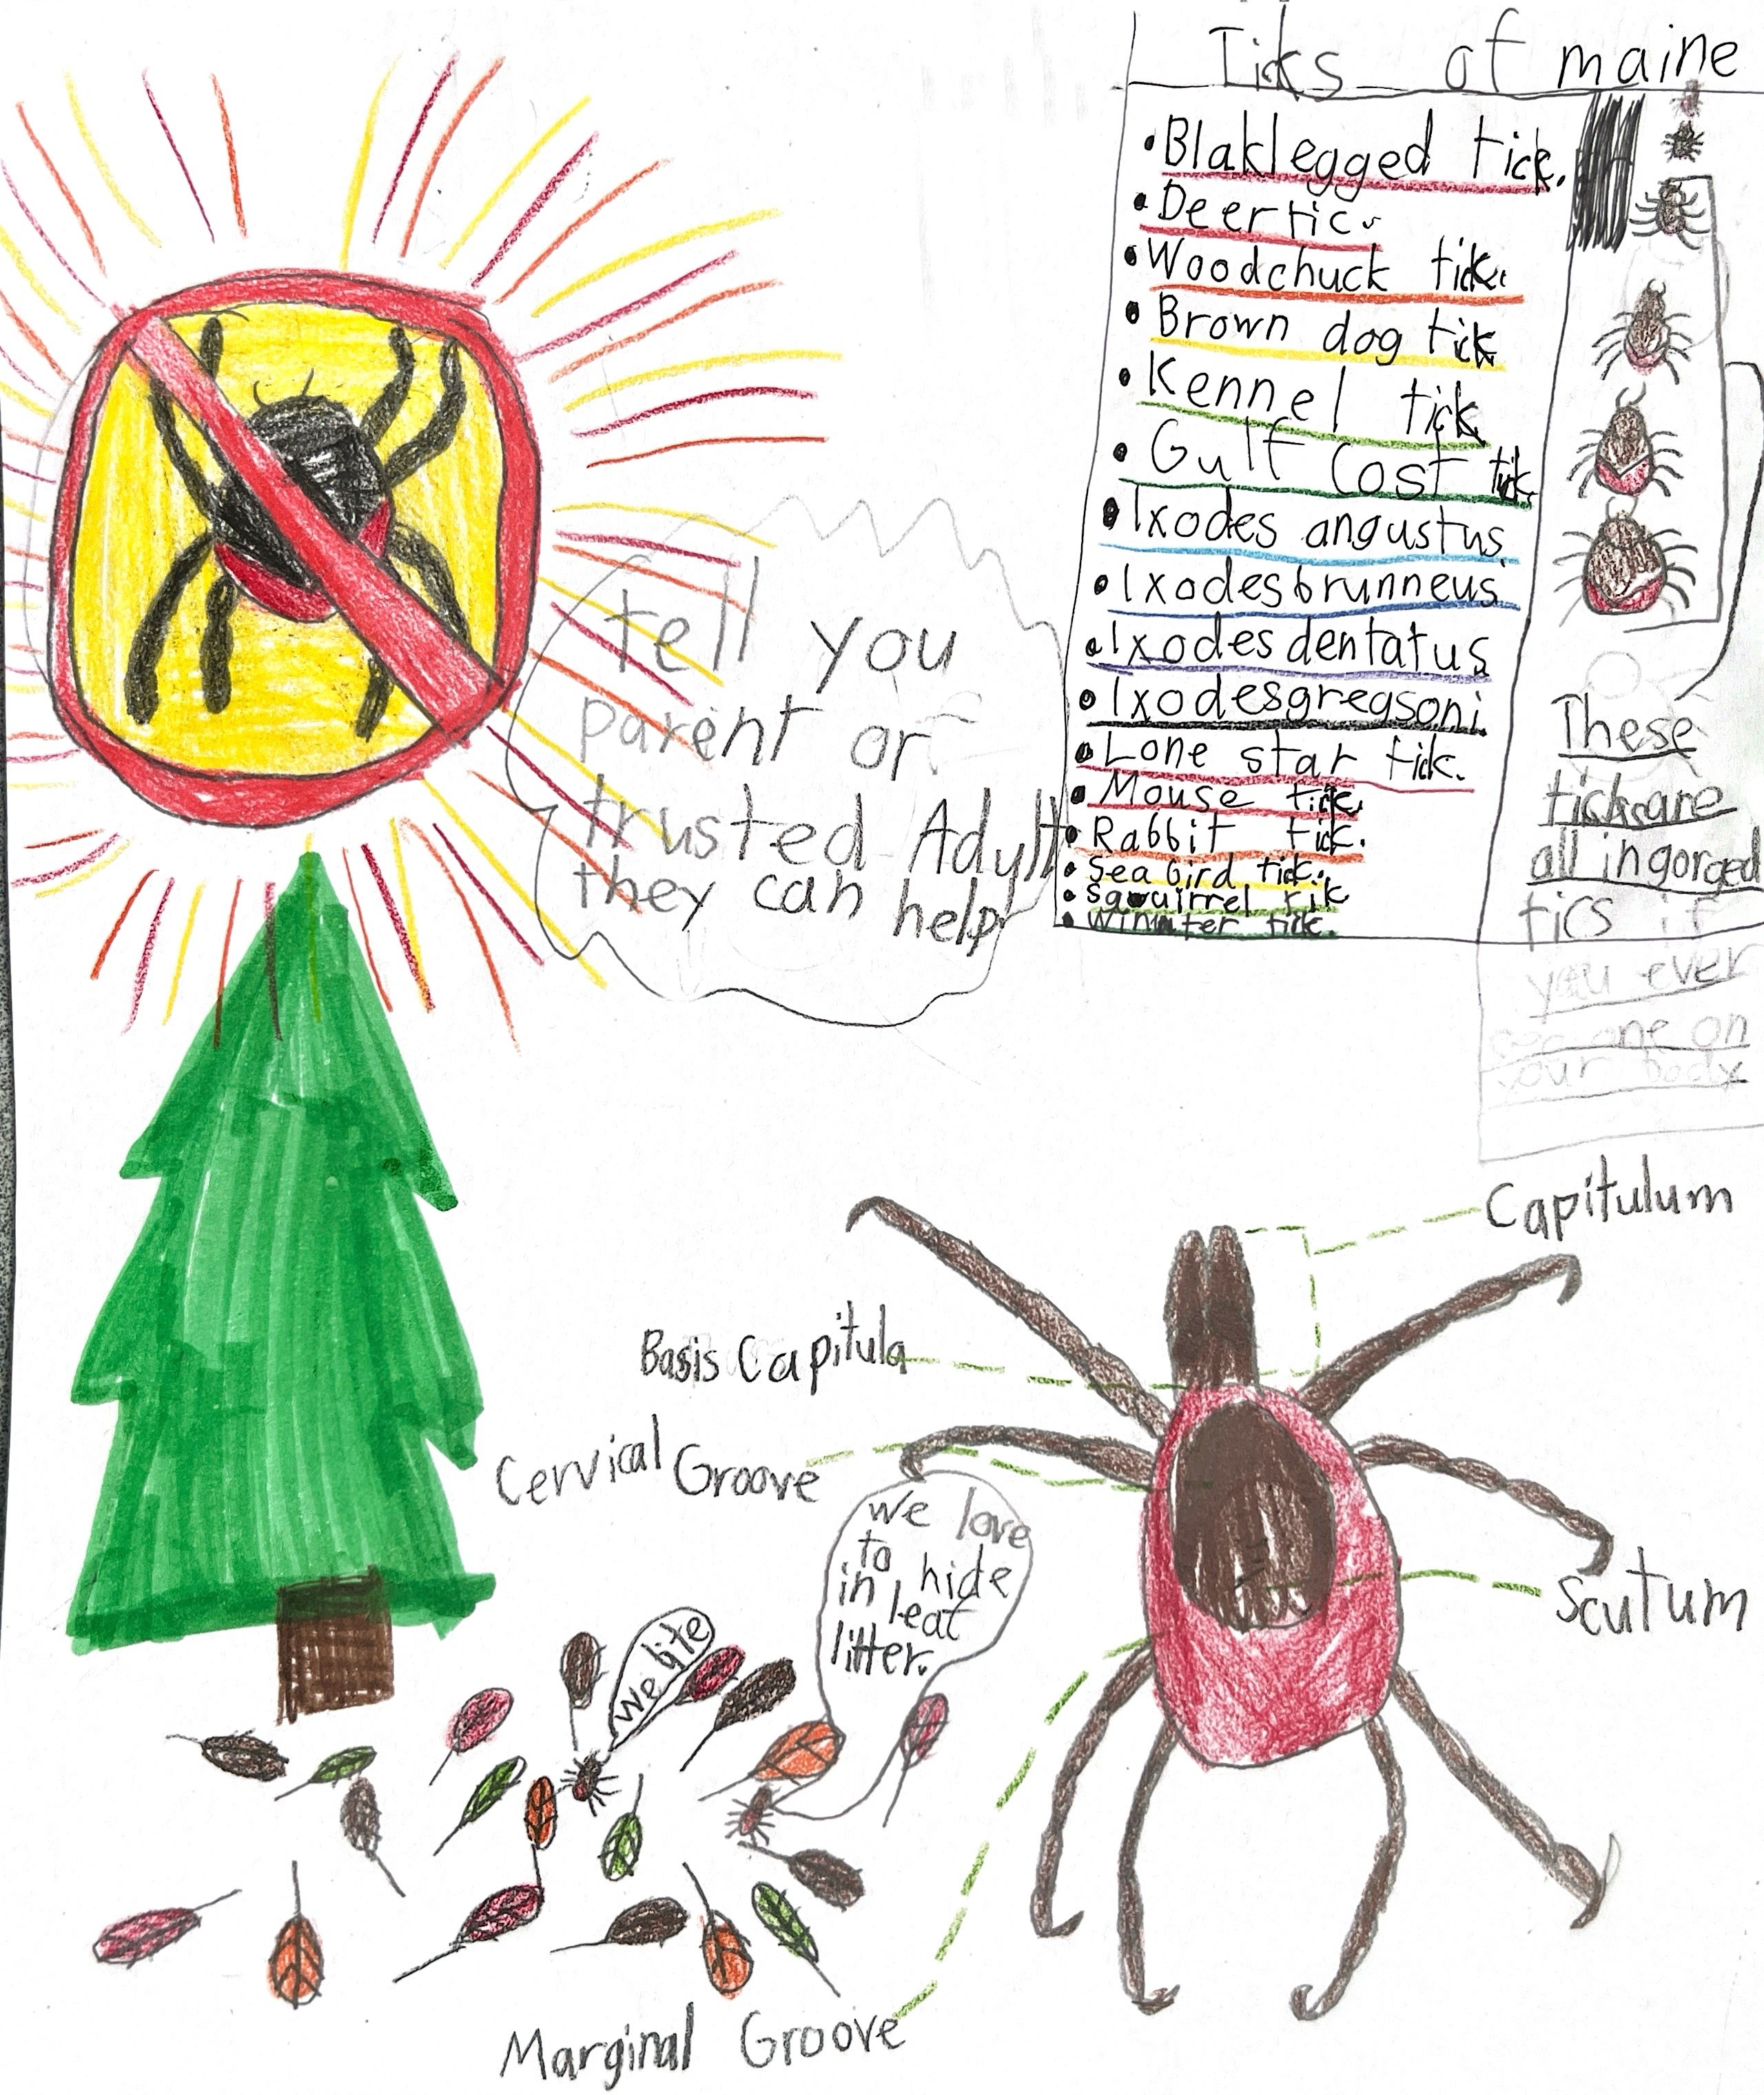 Ticks of maine
•Blaklegged tick.
•Deertic.
•Woodchuck tick.
•Brown dog tick
•Kennel tick
•Gulf Cost tick
•Ixodes angustus
•Ixodesbrunneus
•Ixodesdentatus
•Ixodesgregsoni
•Lone star tick.
•Mouse tick.
•Rabbit tick.
•Sea bird tick.
•Sqouirrel tik
•Winter tick.
These
ticksare
all ingorged
tics if
you ever
see one on
your body
tell you
parent or
trusted Adult
they can help!
Capitulum
Basis Capitula
Cervical Groove
Scutum
Marginal Groove
we bite
we love
to hide
in leaf
litter.